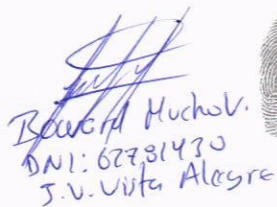 Muchov.
DNI: 62781430
J.V. Vista Alegre